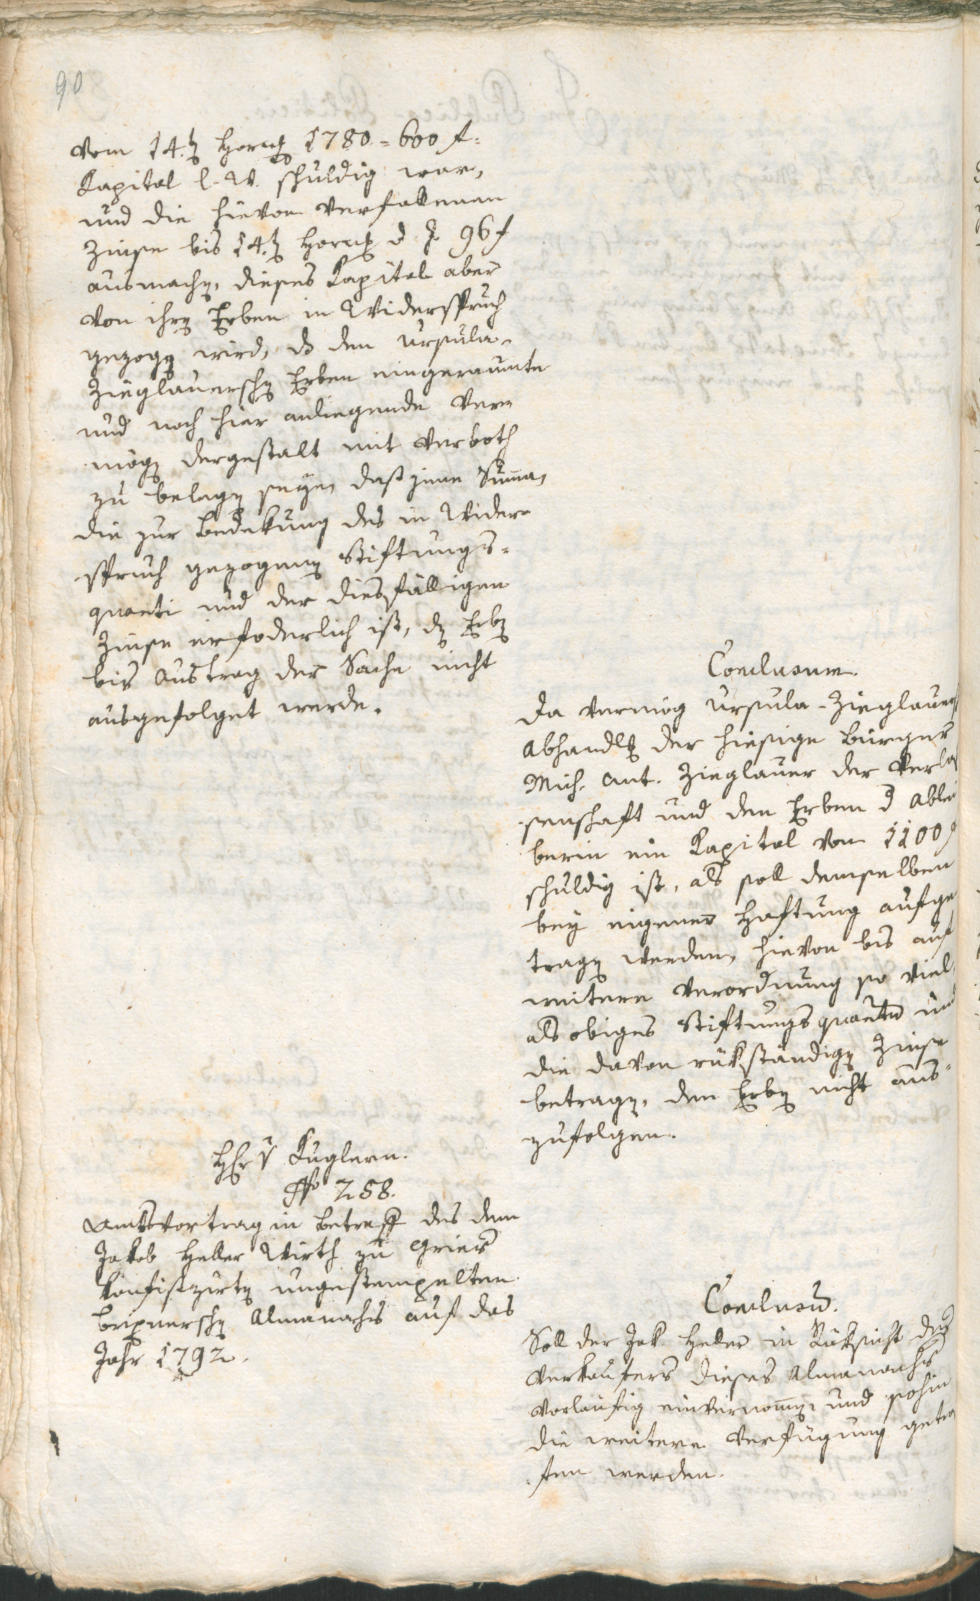 90
vom 14.ten Horng 1780 = 600 f.
Kapital l. W. schuldig war,
und die hievon verfallenen
Zinse bis 14.ten Horng d. J. 96 f
ausmachen, dieses Kapital aber
von ihren Erben in Widerspruch
gezogen wird, das den Ursula-
Zieglauerschen Erben eingeraumte
und noch hier anliegende Ver-
mögen dergestalt mit Verboth
zu belegen seyn, daß jene Summa,
die zur Bedekung des in Wider-
spruch gezogenen Stiftungs-
quanti und der diesfälligen
Zinse erfoderlich ist, den Erben
bis Austrag der Sache nicht
ausgefolget werde.
Conclusum.
Da vermög Ursula-Zieglauer
Abhandlung der hiesige Burger
Mich. Ant. Zieglauer der Verlas
senschaft und den Erben der Able
berin ein Kapital von 1100 f
schuldig ist, als soll demselben
bey eigener Haftung aufge
tragen werden, hievon bis auf
weitere Verordnung so viel,
als obiges Stiftungsquantum und
die davon rükständigen Zinse
betragen, den Erben nicht aus-
zufolgen.
Hr v Kuglern.
No 258.
Amtsvortrag in Betreff des dem
Jakob Heller Wirth zu Gries
konfiszirten ungestempelten
Brixnerschen Almanachs auf das
Jahr 1792.
Conclusum.
Soll der Jak. Heller in Rüksicht des
Verkaufers dieses Almanachs
vorläufig einvernommen, und sohin
die weitere Verfügung getrof
fen werden.